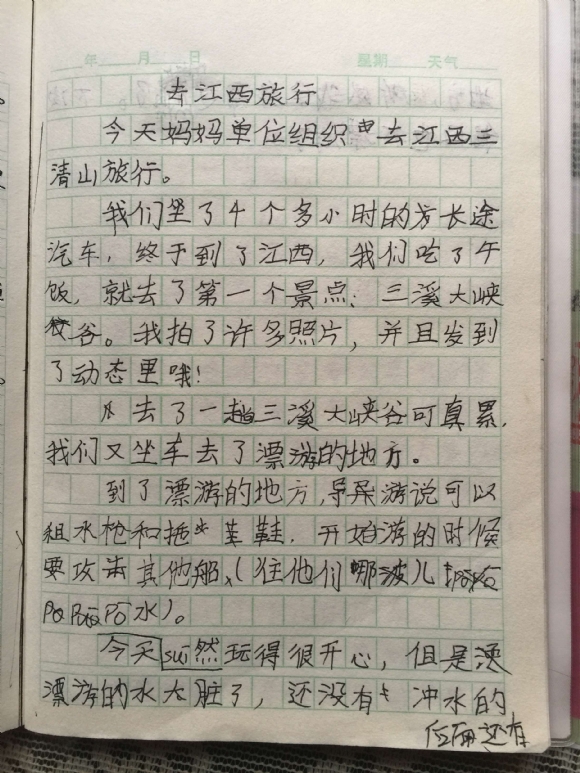 年 月 日 星期 天气
去江西旅行
今天妈妈单位组织去江西三
清山旅行。
我们坐了4个多小时的长途
汽车,终于到了江西,我们吃了午
饭,就去了第一个景点:三溪大峡
谷。我拍了许多照片,并且发到
了动态里哦!
去了一趟三溪大峡谷可真累,
我们又坐车去了漂游的地方。
到了漂游的地方,导游说可以
租水枪和拖鞋.开始游的时候
要攻击其他船,(往他们那边儿
水)。
今天suī然玩得很开心,但是
漂游的水太脏了,还没有冲水的
后面还有